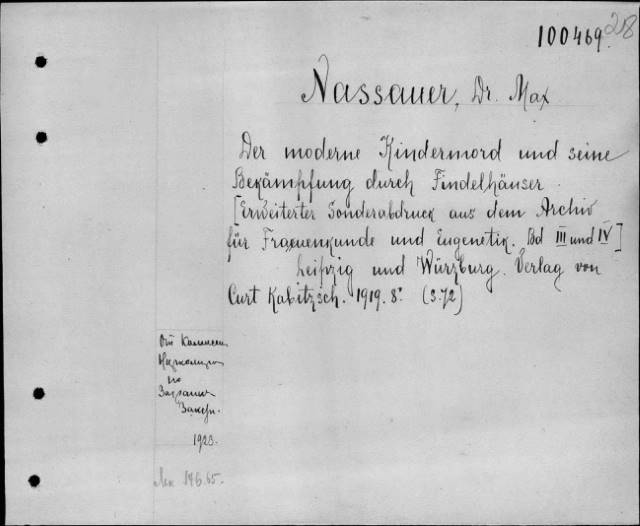 100469.
218
Nassauer, Dr. Max
Der moderne Kindermord und seine
Bekämpfung durch Findelhäuser.
[Erweiterter Sonderabdruck aus dem Archiv
für Frauenkunde und Eugenetik. Bd III und IV]
Leipzig und Würzburg. Verlag von
Curt Kabitzsch. 1919. 8°. (S.72)
по
1923.